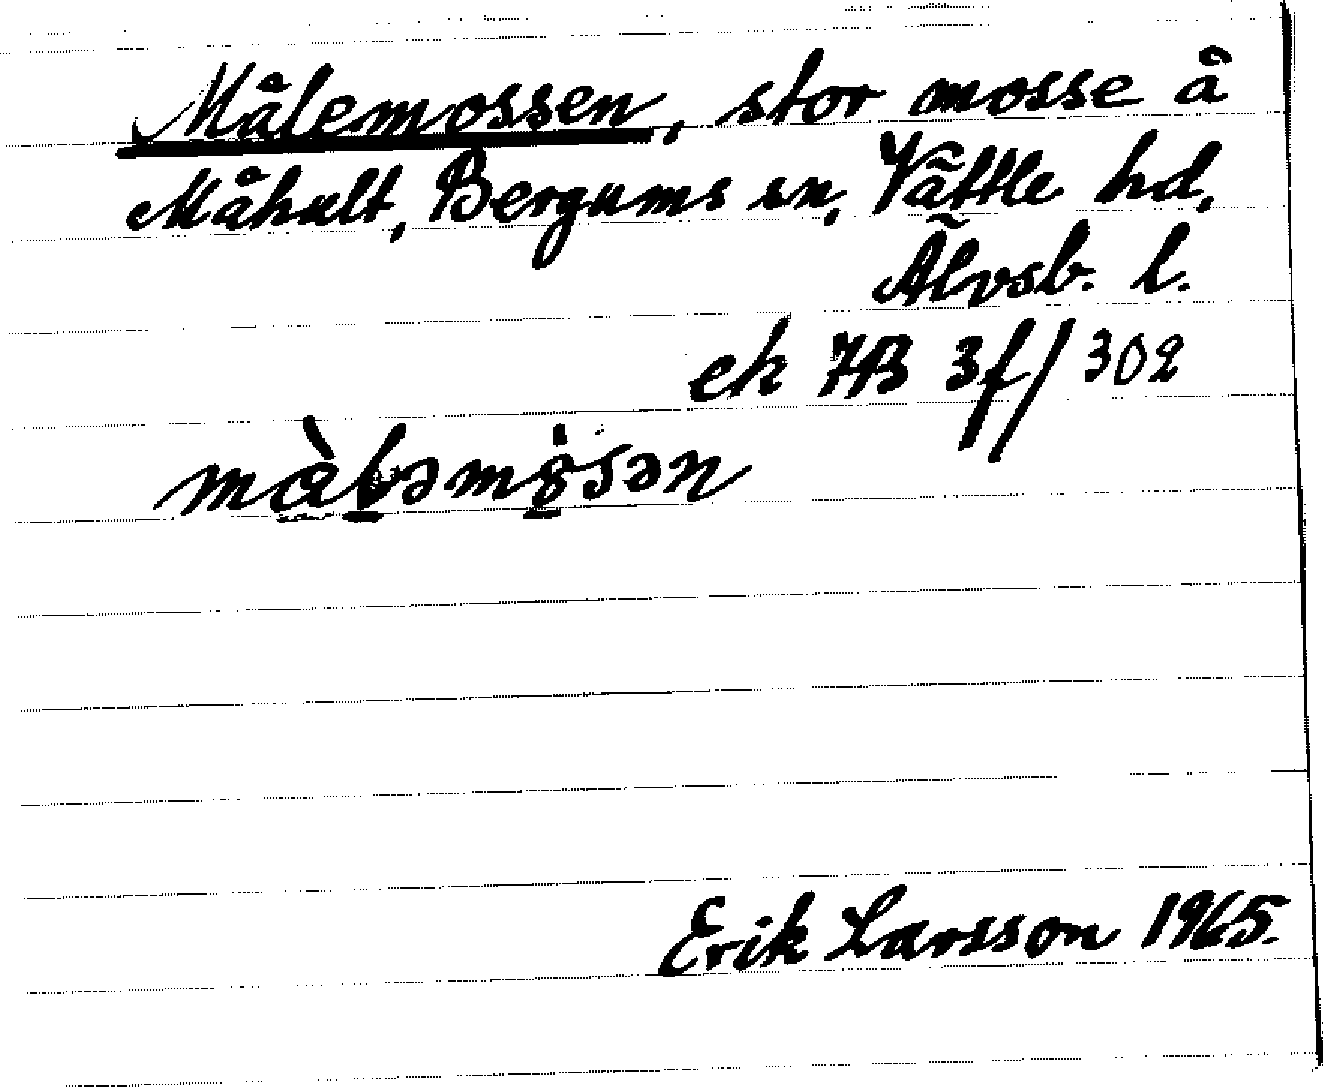 Målemossen, stor mosse å
Måhult, Bergums sn, Vättle hd,
Älvsb. l.
ek 7B 3f/302
Erik Larsson 1965.